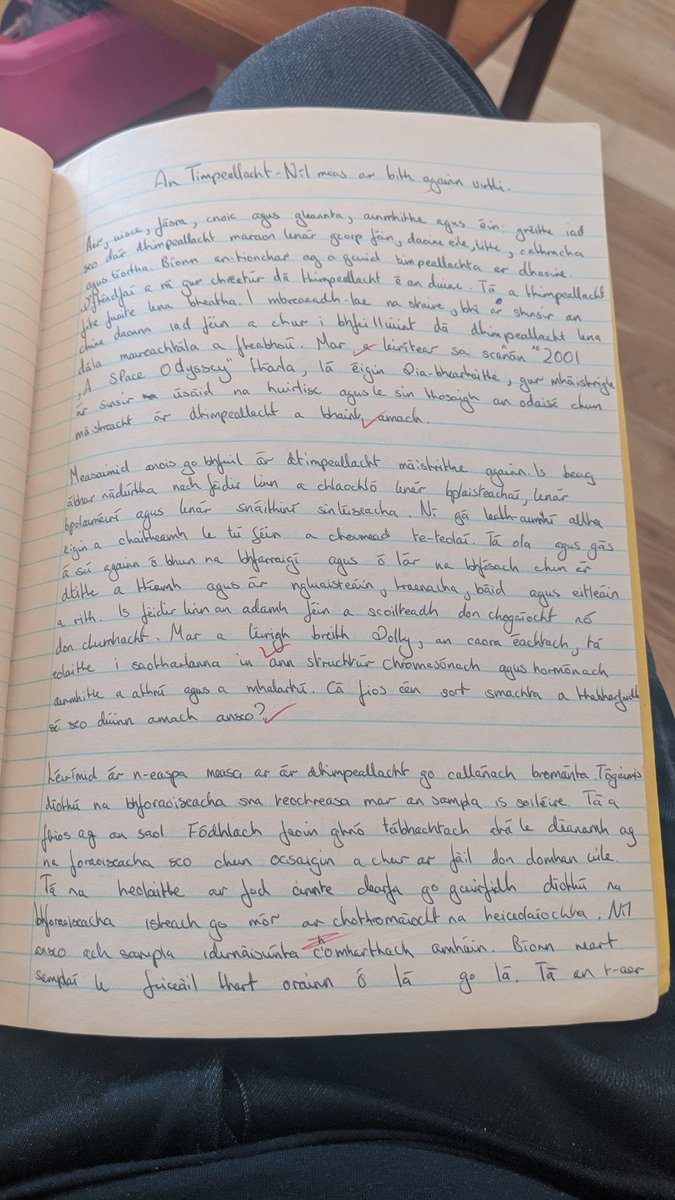 An Timpeallacht - Níl meas ar bith againn uirthi.
Aer, uisce, fásra, cnoic agus gleannta, ainmhithe agus éin: gnéithe iad
seo dár dtimpeallacht maraon lenár gcorp féin, daoine eile, tithe, cathracha
agus tíortha. Bíonn an-tionchar ag a gcuid timpeallachta ar dhaoine.
D'fhéadfaí a rá gur chréatúr dá thimpeallacht é an duine. Tá a thimpeallacht
fite fuaite lena bheatha. I mbreacadh-lae na staire, bhí ar shinsir an
chine daonna iad féin a chur i bhfeiliúint dá dtimpeallacht lena
ndála maireachtála a fheabhsú. Mar a léirítear sa scánán "2001
, A Space Odyssey" tharla, lá éigin Dia-bheartaithe, gur mháistrigh
ár sinsir úsáid na huirlisc agus le sin thosaigh an odaisé chun
máistreacht ár dtimpeallacht a bhaint amach.
Measaimid anois go bhfuil ár dtimpeallacht máistrithe againn. Is beag
ábhar nádúrtha nach féidir linn a chlaochló lenár bplaisteachaí, lenár
bpolaiméirí agus lenár snáithíní sintéiseacha. Ní gá leath-ainmhí allta
éigin a chaitheamh le tú féin a choimeád te-teolaí. Tá ola agus gás
á sú againn ó bhun na bhfarraigí agus ó lár na bhfásach chun ár
dtithe a théamh agus ár ngluaisteáin, traenacha, báid agus eitleáin
a rith. Is féidir linn an adamh féin a scoilteadh don chogaíocht nó
don chumhacht. Mar a léirigh breith Dolly, an caora éachtach, tá
eolaithe i saotharlanna in ann struchtúr chromasónach agus hormónach
ainmhithe a athrú agus a mhalartú. Cá fios cén sort smachta a thabharfaidh
sé seo dúinn amach anseo?
Léirímid ár n-easpa measa ar ár dtimpeallacht go callánach bromanta. Tógaimis
díothú na bhforaoiseacha sna teochreasa mar an sampla is soiléire. Tá a
fhios ag an saol Fódhlach faoin ghnó tábhachtach atá le déanamh ag
na foraoiseacha seo chun ocsaigin a chur ar fáil don domhan uile.
Tá na heolaithe ar fad cinnte dearfa go gcuirfidh díothú na
bhforaoiseacha isteach go mór ar chothromaíocht na heiceolaíochta. Níl
anseo ach sampla idirnáisiúnta comharthach amháin. Bíonn neart
samplaí le feiceáil thart orainn ó lá go lá. Tá an t-aer